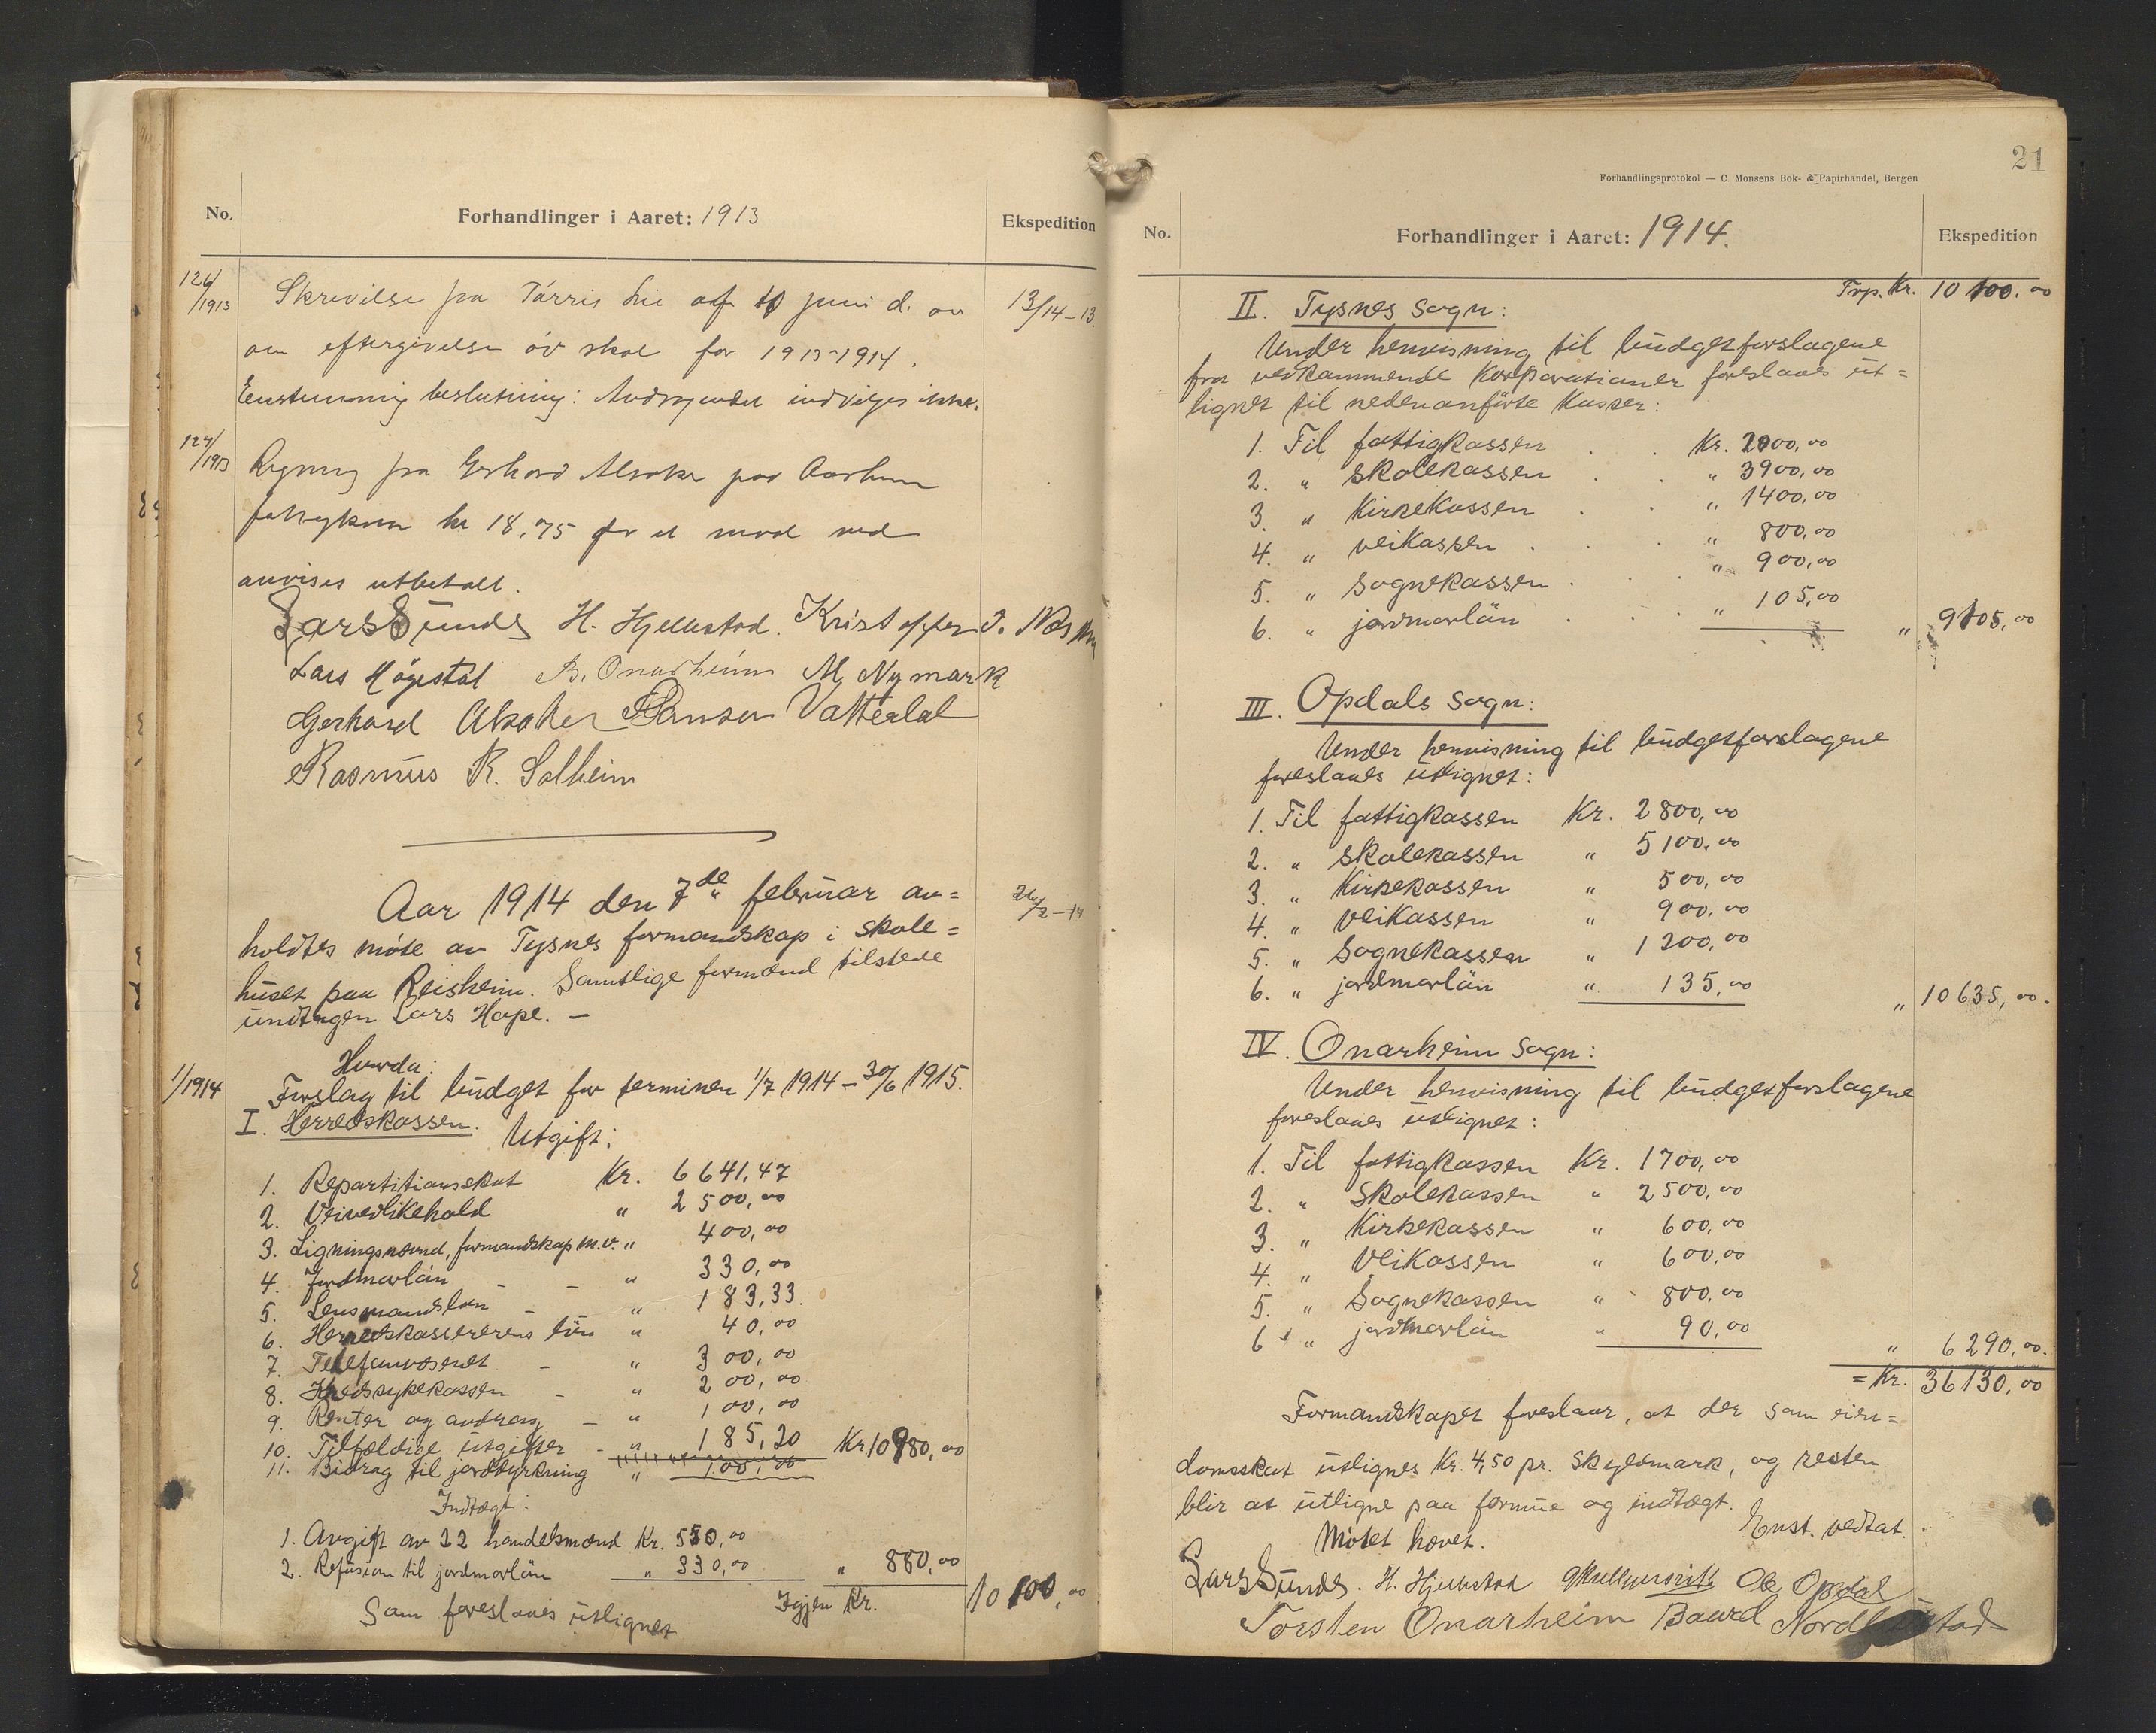 No.
Forhandlinger i Aaret: 1913
Ekspedition
126/1913
Skrivelse fra Tárris Lie af 10 juni d. aar
13/14-13.
om eftergivelse av skat for 1913-1914.
Enstemmig beslutning: Andragendet indvilges ikke.
127/1913
Regning fra Gerhard Alsaker paa Aarhun
fattigkom kr 18,75 for et maal ved
anvises utbetalt.
Lars Sunde H. Hjellestad. Kristoffer J. Næs
Lars Høgestøl B. Onarheim M. Nymark
Gerhard Alsaker Hansen Vattedal
Rasmus R. Solheim
Aar 1914 den 7de februar av=
26/2-14
holdtes møte av Tysnes formandskap i skole=
huset paa Reisheim. Samtlige formænd tilstede
undtagen Lars Hope. —
Hvorda:
1/1914
Forslag til budget for terminen 1/7 1914 - 30/6 1915.
I. Herredskassen. Utgift:
1. Repartitionsskat Kr. 6641,47
2. Veivedlikehold " 2500,00
3. Ligningsnævnd, formandskap m.v. " 400,00
4. Jordmorløn - - " 330,00
5. Lensmandsløn - " 183,33.
6. Herredskassererens løn " 40,00
7. Telefonvæsenet - " 300,00
8. Kredssykekassen - " 200,00
9. Renter og andrag - " 100,00
10. Tilfældige utgifter - " 185,20 Kr. 10980,00
11. Bidrag til jorddyrkning " 100,00
Indtægt:
1. Avgift av 22 handelsmænd Kr. 550,00
2. Refusion til jordmorløn " 330,00 " 880,00
Som foreslaaes utlignet Igjen Kr. 10100,00
21
Forhandlingsprotokol — C. Monsens Bok- & Papirhandel, Bergen
No.
Forhandlinger i Aaret: 1914.
Ekspedition
Trp. Kr. 10100.00
II. Tysnes sogn:
Under henvisning til budgetforslagene
fra vedkommende korporationer foreslaaes ut=
lignet til nedenanførte kasser:
1. Til fattigkassen . . Kr. 2000,00
2. " skolekassen . . " 3900,00
3. " kirkekassen . . " 1400,00
4. " veikassen . . . " 800,00
5. " sognekassen . . " 900,00
6. " jordmorløn . . " 105,00
" 9105,00
III. Opdals sogn:
Under henvisning til budgetforslagene
foreslaaes utlignet:
1. Til fattigkassen Kr. 2800,00
2. " skolekassen " 5100,00
3. " kirkekassen " 500,00
4. " veikassen " 900,00
5. " sognekassen " 1200,00
6. " jordmorløn " 135,00
" 10635,00.
IV. Onarheim sogn:
Under henvisning til budgetforslagene
foreslaaes utlignet:
1. Til fattigkassen Kr. 1700,00
2. " skolekassen " 2500,00
3. " kirkekassen " 600,00
4. " veikassen " 600,00
5. " sognekassen " 800,00
6. " jordmorløn " 90,00
" 6290,00.
= Kr. 36130,00
Formandskapet foreslaar, at der som eien=
domsskat utlignes Kr. 4,50 pr. skyldmark, og resten
blir at utligne paa formue og indtægt.
Enst. vedtat.
Møtet hævet.
Lars Sunde. H. Hjellestad Ole Opdal
Torsten Onarheim Baard Nordbustad